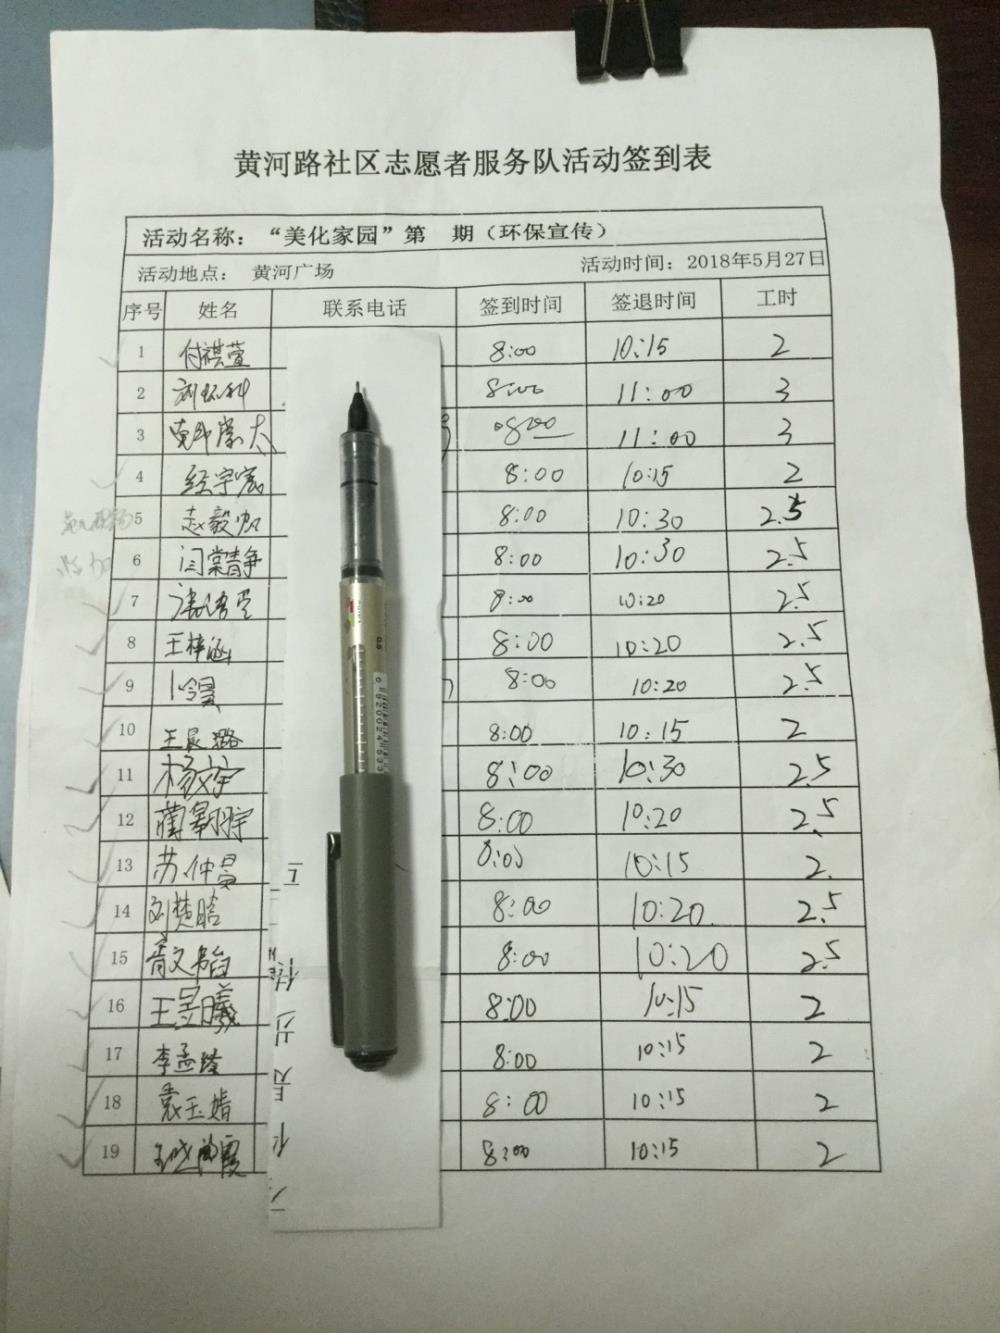 黄河路社区志愿者服务队活动签到表
活动名称：“美化家园”第 期（环保宣传）
活动地点： 黄河广场 活动时间：2018年5月27日
序号 姓名 联系电话 签到时间 签退时间 工时
1 付祺萱 8:00 10:15 2
2 8:00 11:00 3
3 8:00 11:00 3
4 经宇宸 8:00 10:15 2
5 赵毅 8:00 10:30 2.5
6 闫棠静 8:00 10:30 2.5
7 8:00 10:20 2.5
8 王梓涵 8:00 10:20 2.5
9 8:00 10:20 2.5
10 王晨璐 8:00 10:15 2
11 杨文宇 8:00 10:30 2.5
12 蔺翱宇 8:00 10:20 2.5
13 苏仲昊 8:00 10:15 2
14 刘楚晗 8:00 10:20 2.5
15 8:00 10:20 2.5
16 王昱曦 8:00 10:15 2
17 李孟 8:00 10:15 2
18 袁玉婧 8:00 10:15 2
19 8:00 10:15 2